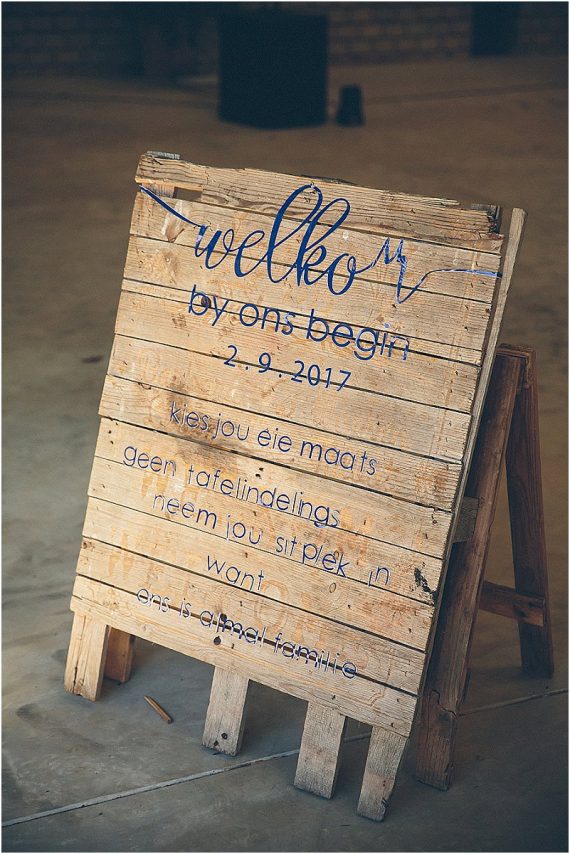 welkom
by ons begin
2.9.2017
kies jou eie maats
geen tafelindelings
neem jou sitplek in
want
ons is almal familie